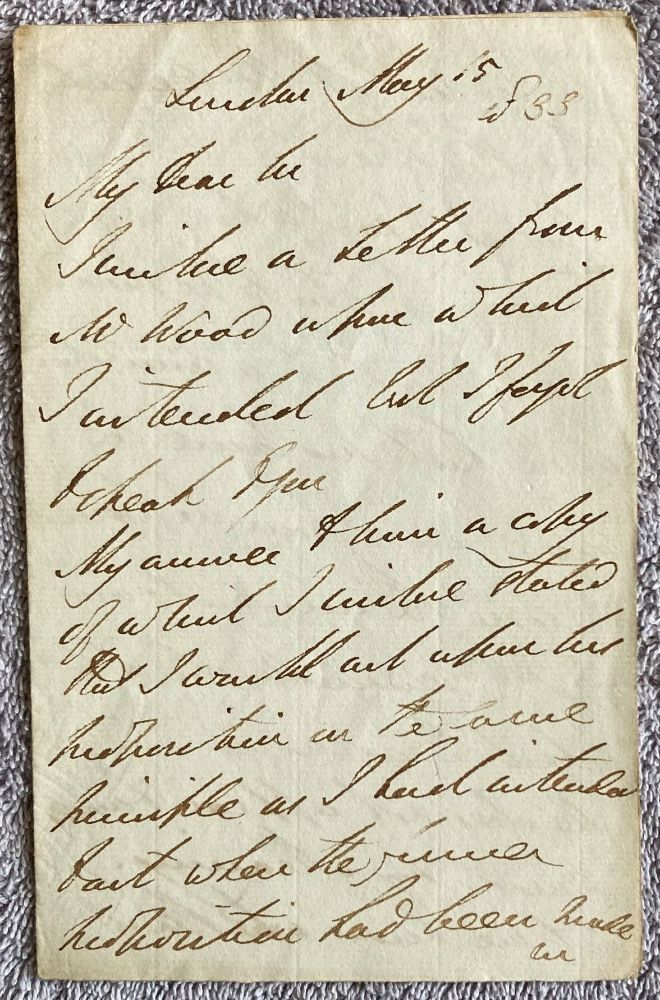 London May 15
1833
My dear Sir
I inclose a Letter from
Mr Wood upon which
I intended but I forgot
to speak to you
My answer to him a copy
of which I inclose stated
that I would act upon his
proposition on the same
principle as I had intended
to act when the former
proposition had been made